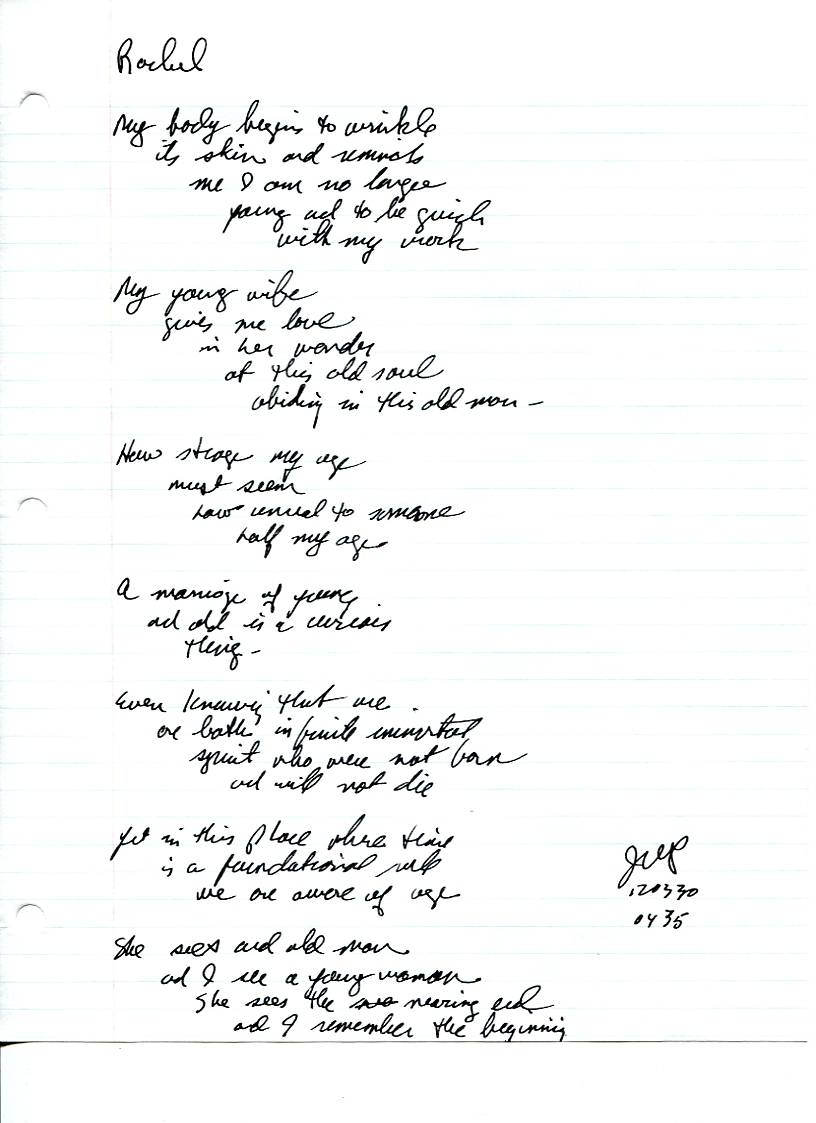 Rachel
My body begins to wrinkle
its skin and reminds
me I am no longer
young and to be quick
with my work
My young wife
gives me love
in her wonder
at this old soul
abiding in this old man -
How strage my age
must seem
how unreal to someone
half my age
A marriage of young
and old is a curious
thing -
Even knowing that we
are both infinite immortal
spirit who were not born
and will not die
Yet in this place where time
is a foundational rule
we are aware of age
JWP
120330
0435
She sees and old man
and I see a young woman
She sees the nearing end
and I remember the beginning